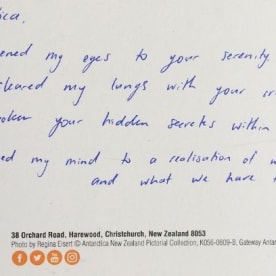 ica,
ened my eyes to your serenity
cleared my lungs with your
oken your hidden secretes within
ed my mind to a realisation of
and what we have
38 Orchard Road, Harewood, Christchurch, New Zealand 8053
Photo by Regina Eisert © Antarctica New Zealand Pictorial Collection, K056-0609-B, Gateway Antar